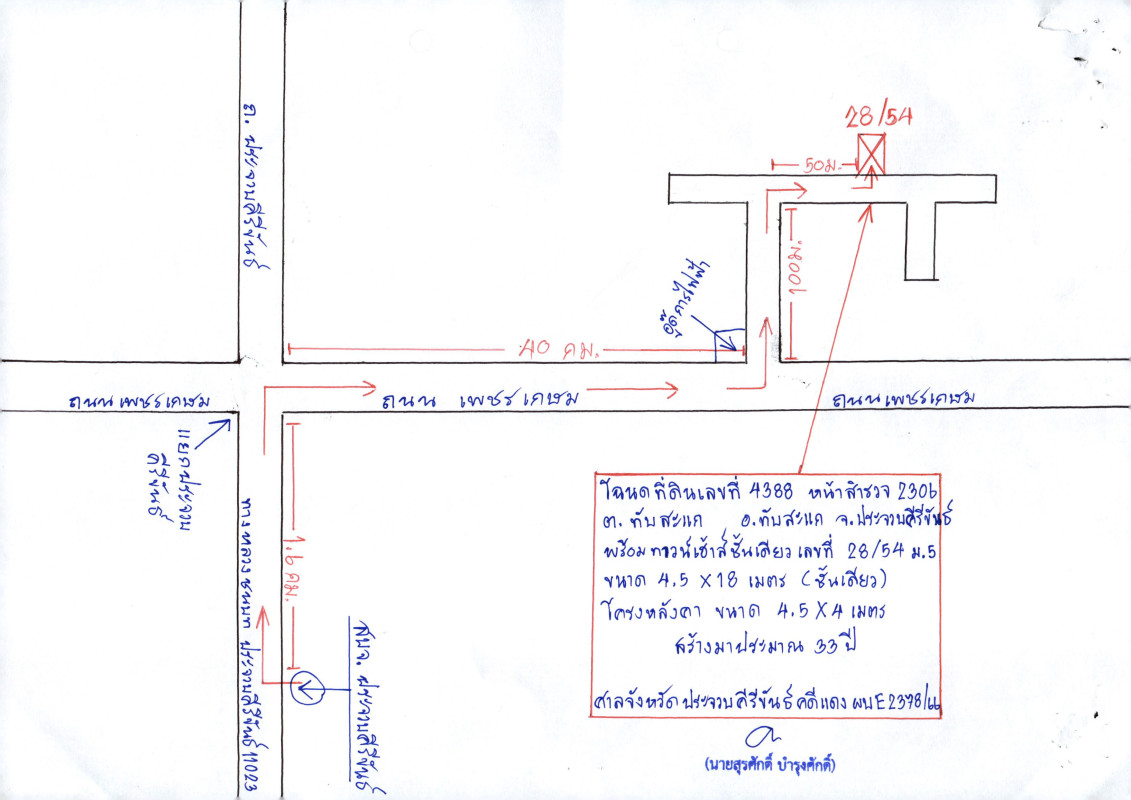 28/54
50ม.
100ม.
อู๊ดคาร์ไฟฟ้า
40 กม.
อ. ประจวบคีรีขันธ์
ถนนเพชรเกษม
ถนน เพชรเกษม
ถนนเพชรเกษม
แยกประจวบ
คีรีขันธ์
1.6 กม.
ทางหลวงชนบท ประจวบคีรีขันธ์ 11023
สบจ. ประจวบคีรีขันธ์
โฉนดที่ดินเลขที่ 4388 หน้าสำรวจ 2306
ต. ทับสะแก อ.ทับสะแก จ.ประจวบคีรีขันธ์
พร้อมทาวน์เฮ้าส์ชั้นเดียว เลขที่ 28/54 ม.5
ขนาด 4.5 X 18 เมตร (ชั้นเดียว)
โครงหลังคา ขนาด 4.5 X 4 เมตร
สร้างมาประมาณ 33 ปี
ศาลจังหวัดประจวบคีรีขันธ์ คดีแดง ผบE2378/66
(นายสุรศักดิ์ บำรุงศักดิ์)